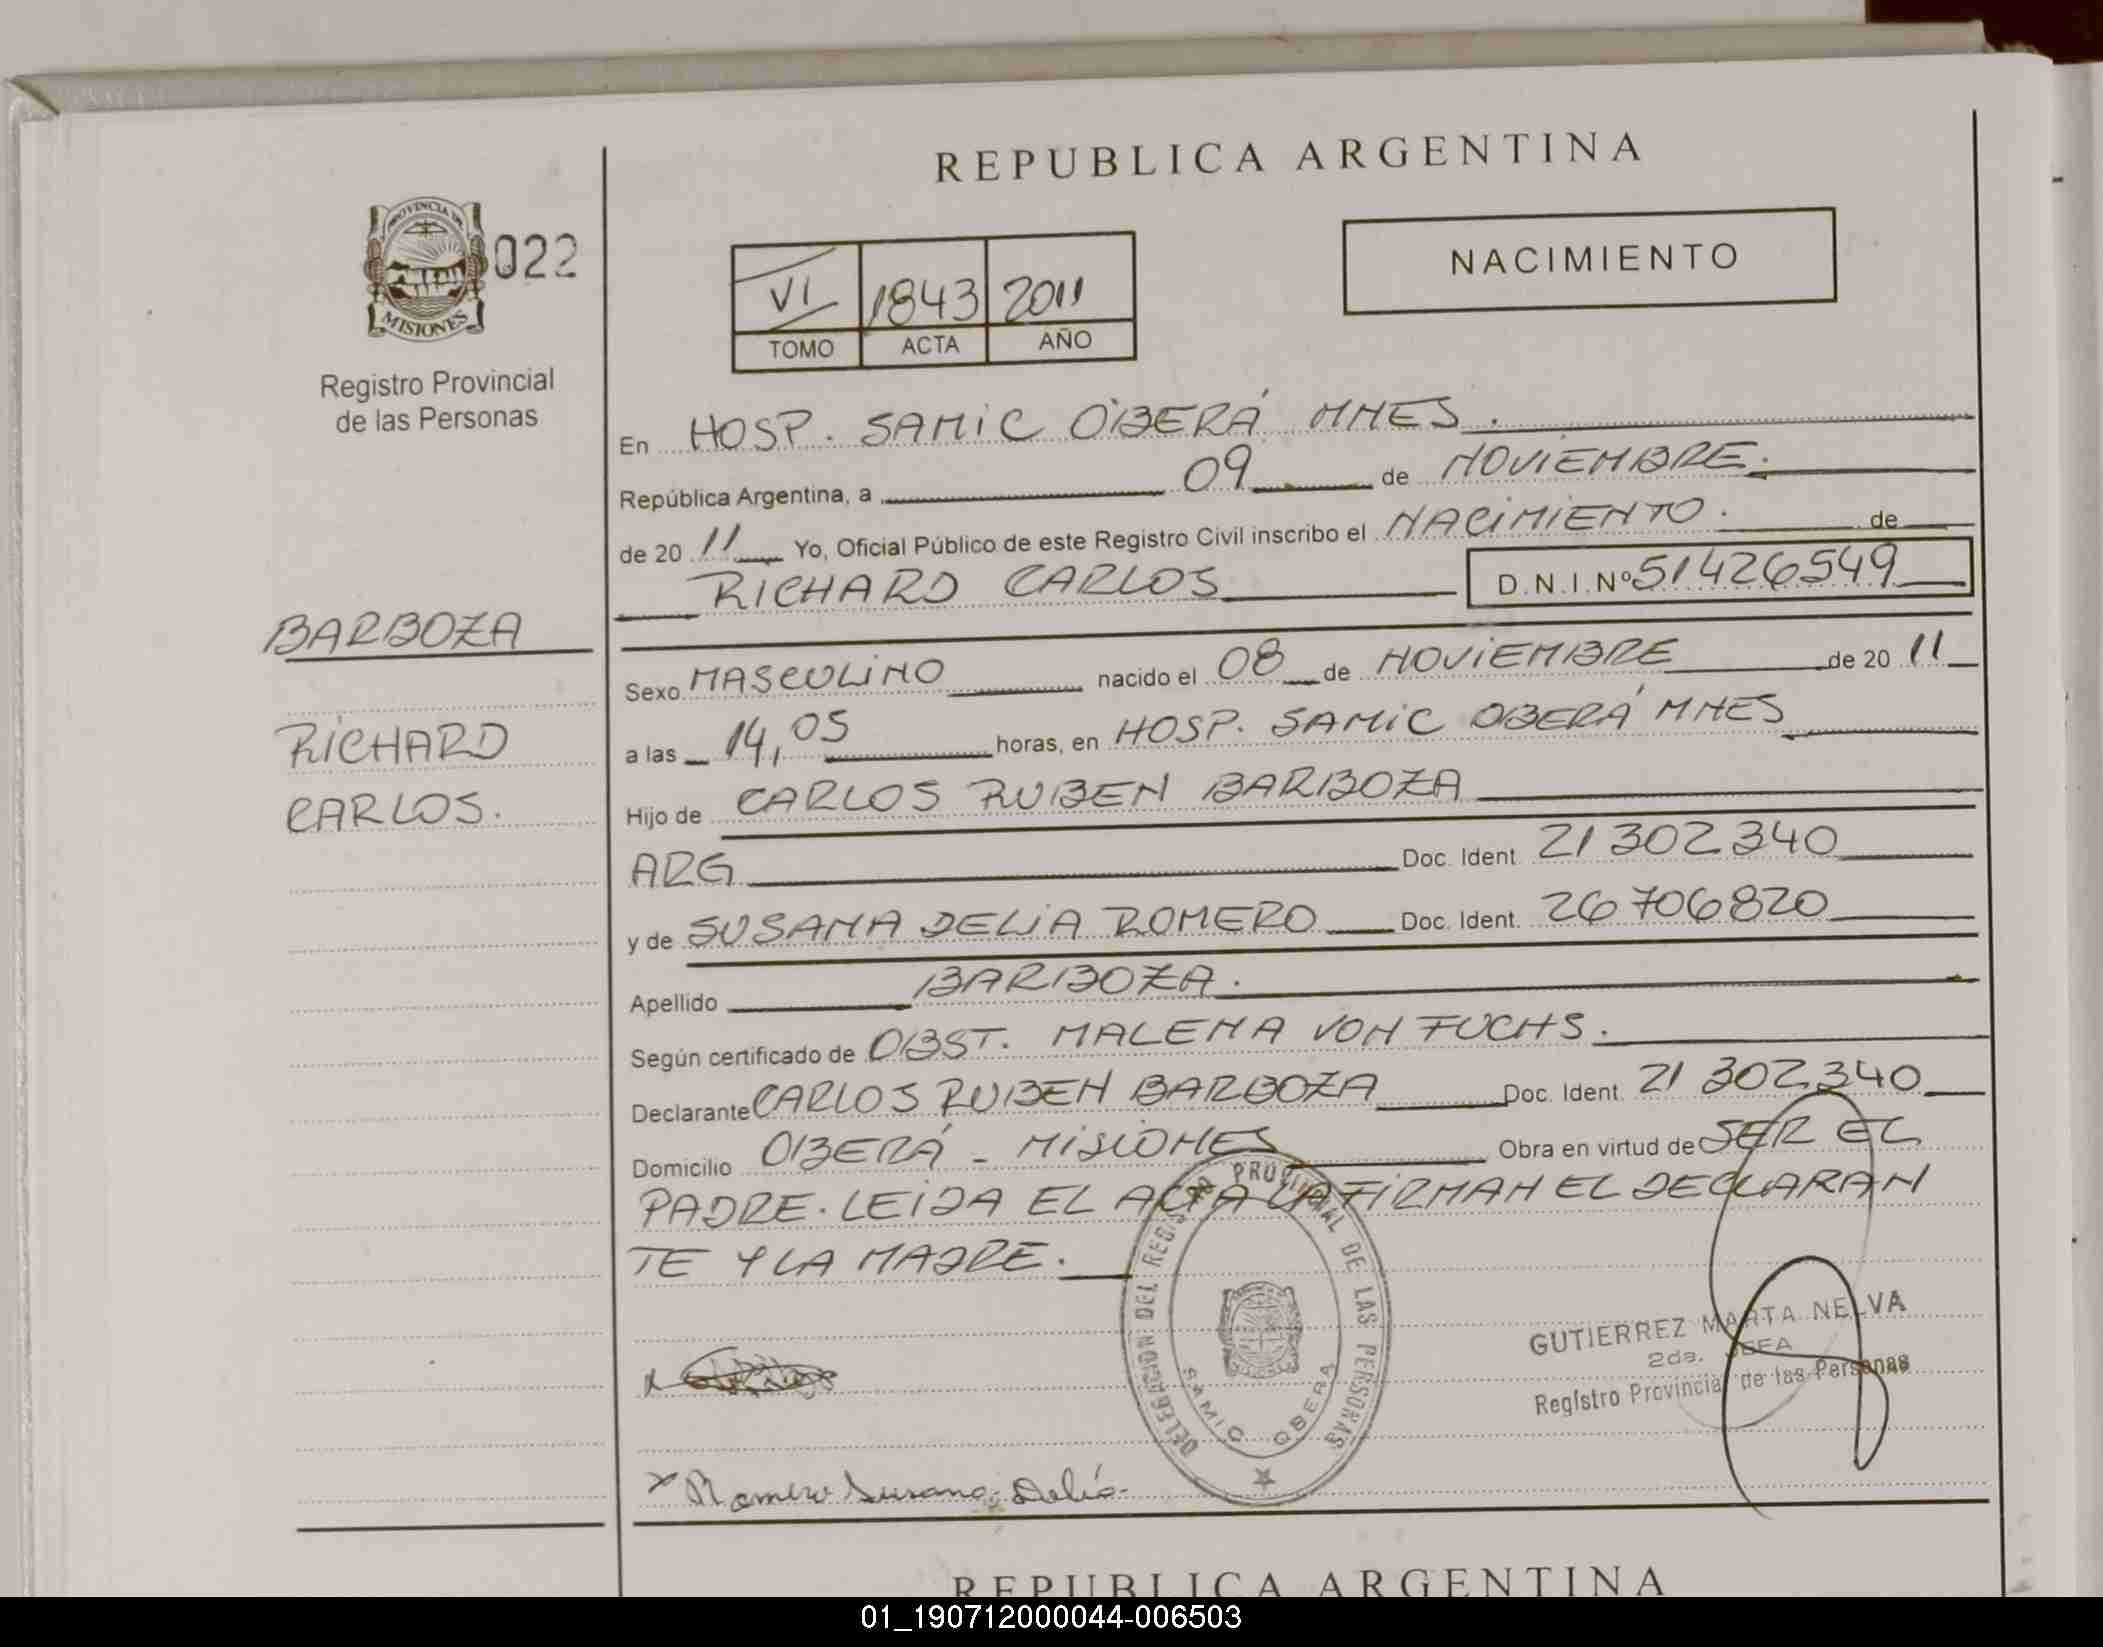 REPUBLICA ARGENTINA
PROVINCIA DE
MISIONES
022
Registro Provincial
de las Personas
VI 1843 2011
TOMO ACTA AÑO
NACIMIENTO
En HOSP. SAMIC OBERÁ MNES.
República Argentina, a 09 de NOVIEMBRE.
de 20 11 Yo, Oficial Público de este Registro Civil inscribo el NACIMIENTO. de
RICHARD CARLOS D.N.I.Nº 51426549
BARBOZA
RICHARD
CARLOS.
Sexo MASCULINO nacido el 08 de NOVIEMBRE de 20 11
a las 14,05 horas, en HOSP. SAMIC OBERÁ MNES
Hijo de CARLOS RUBEN BARBOZA
ARG Doc. Ident. 21 302 340
y de SUSANA DELIA ROMERO Doc. Ident. 26 706820
Apellido BARBOZA.
Según certificado de OBST. MALENA VON FUCHS.
Declarante CARLOS RUBEN BARBOZA Doc. Ident. 21 302340
Domicilio OBERÁ - MISIONES Obra en virtud de SER EL
PADRE. LEIDA EL ACTA LA FIRMAN EL DECLARAN
TE Y LA MADRE.
DELEGACION DEL REGISTRO PROVINCIAL DE LAS PERSONAS
SAMIC OBERA
GUTIERREZ MARTA NELVA
2da. JEFA
Registro Provincial de las Personas
x Romero Susana Delia
REPUBLICA ARGENTINA
01_190712000044-006503